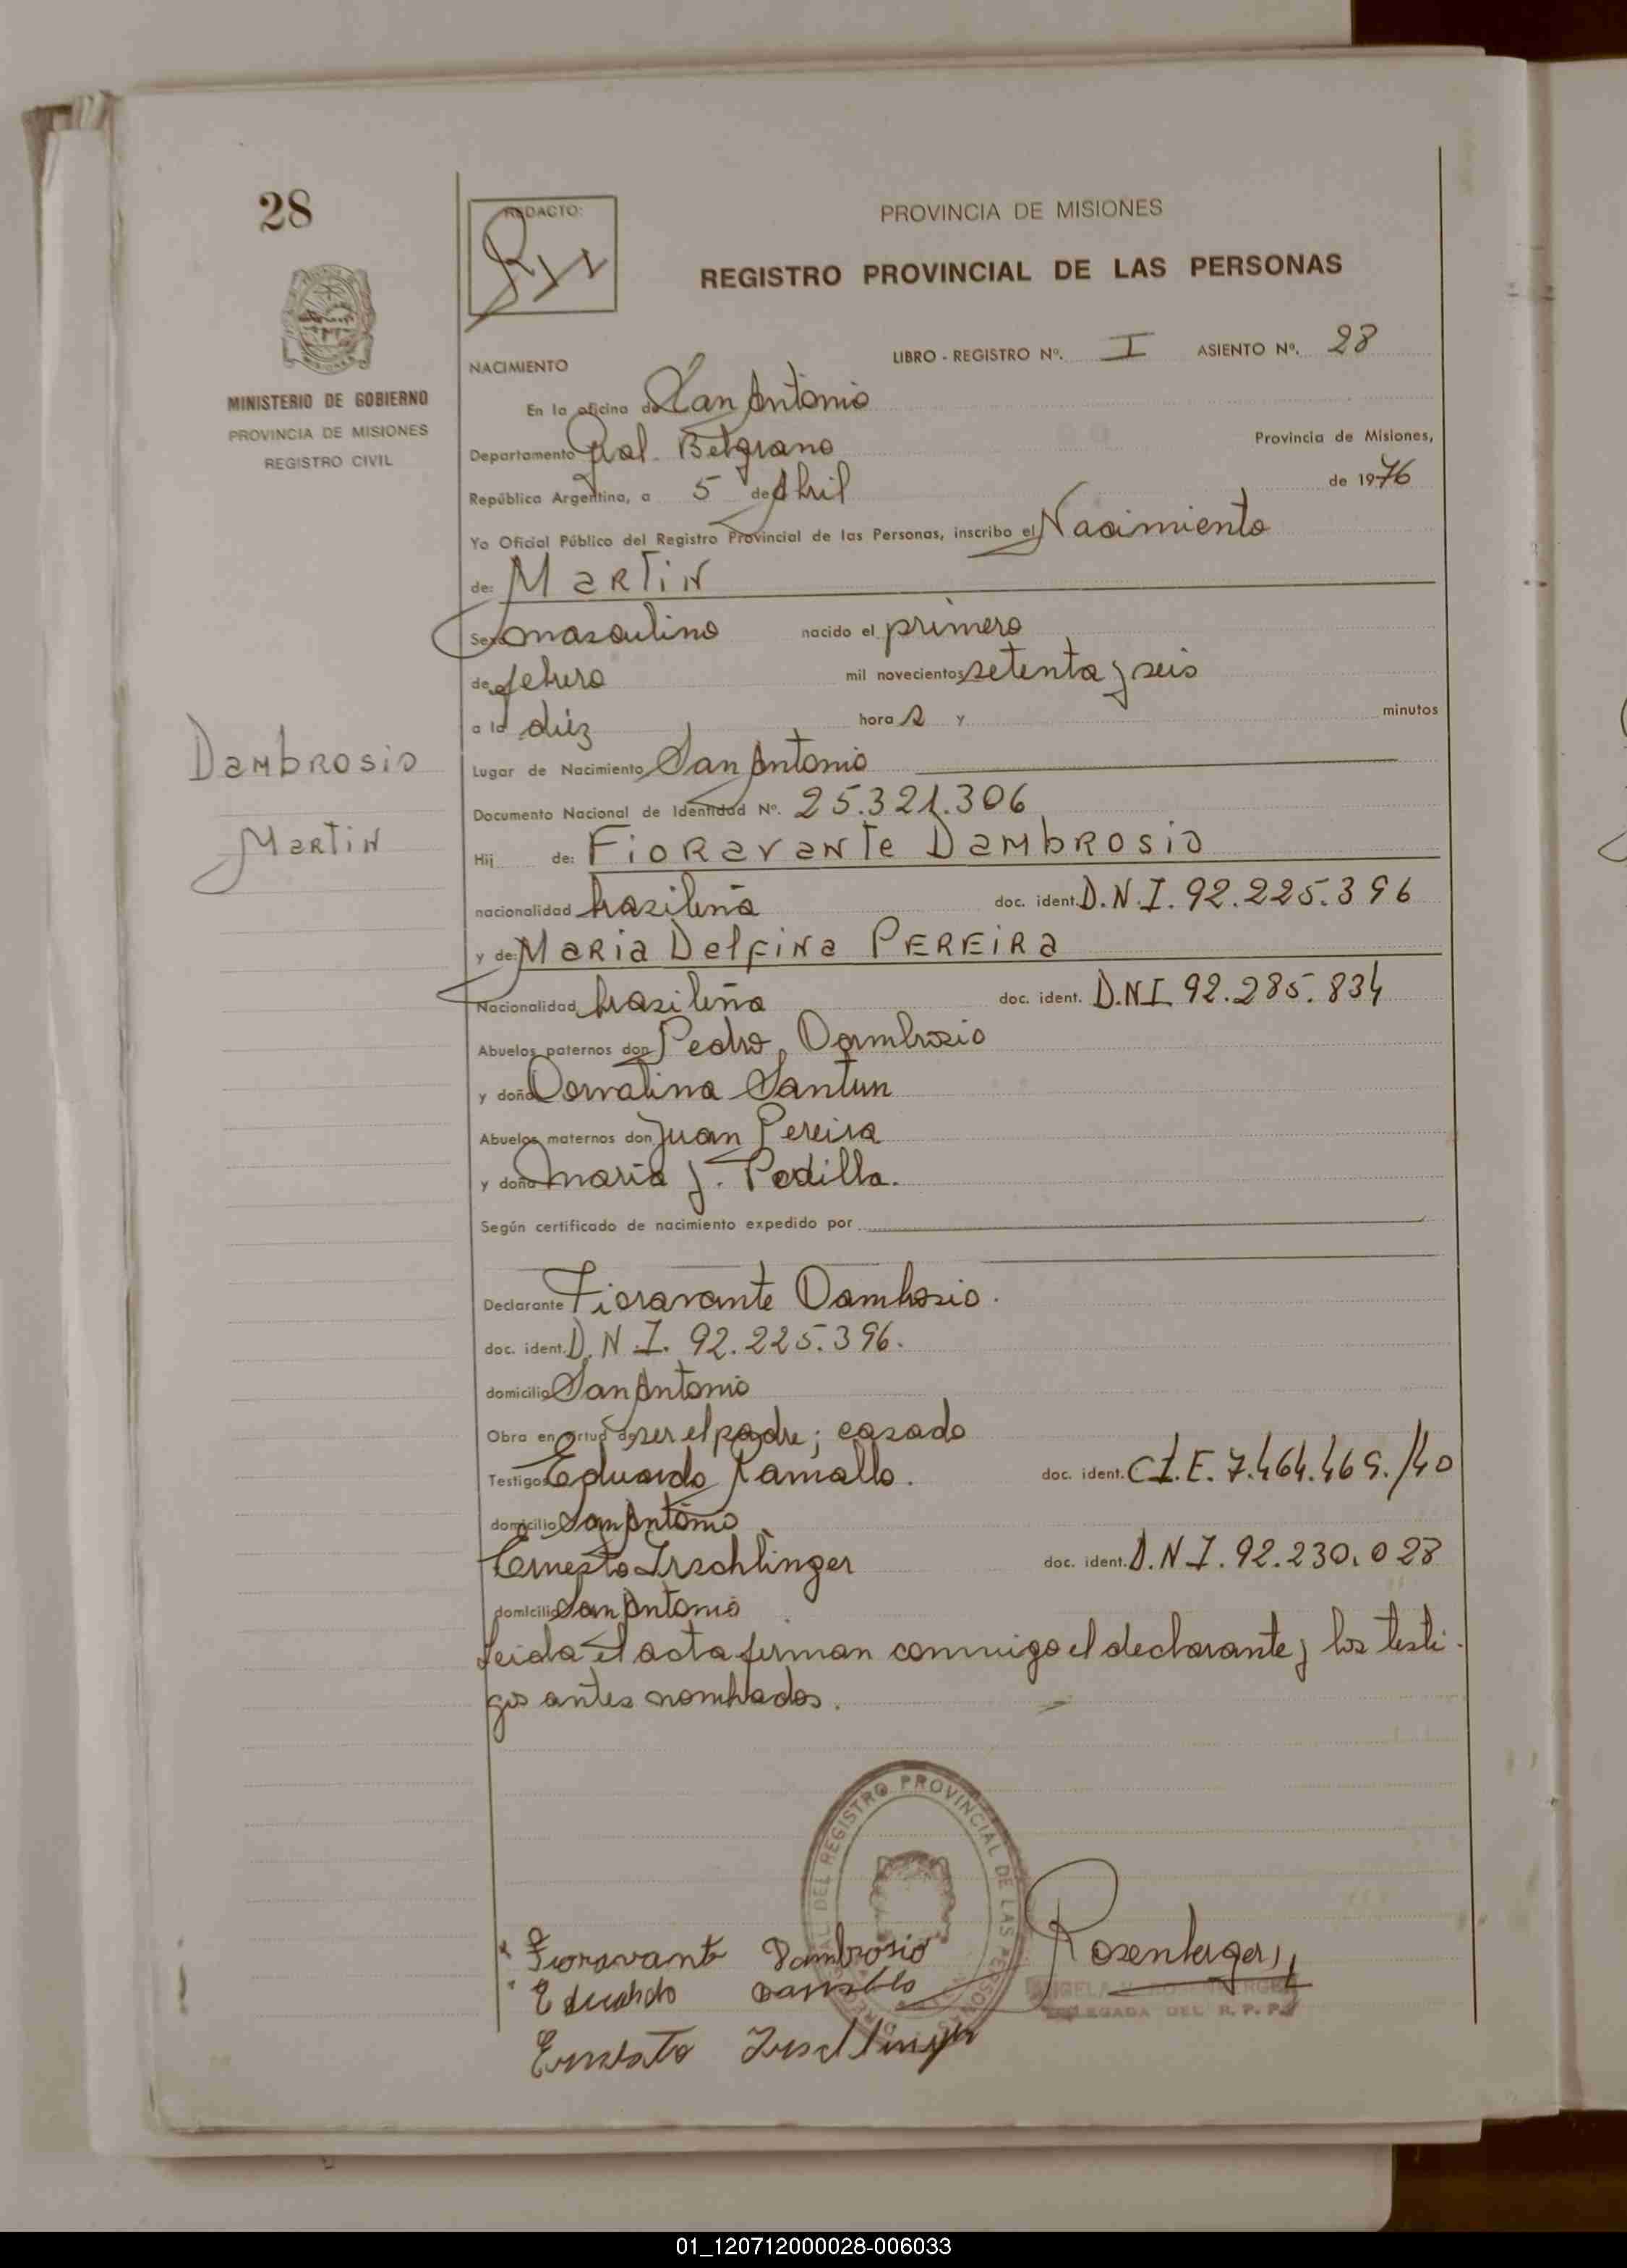 28
REDACTO:
PROVINCIA DE MISIONES
REGISTRO PROVINCIAL DE LAS PERSONAS
MINISTERIO DE GOBIERNO
PROVINCIA DE MISIONES
REGISTRO CIVIL
NACIMIENTO LIBRO - REGISTRO Nº. I ASIENTO Nº. 28
En la oficina de San Antonio
Departamento Gral. Belgrano Provincia de Misiones,
República Argentina, a 5 de Abril de 1976
Yo Oficial Público del Registro Provincial de las Personas, inscribo el Nacimiento
de: Martin
Sexo masculino nacido el primero
de febrero mil novecientos setenta y seis
a la diéz hora s y minutos
Dambrosio
Martin
Lugar de Nacimiento San Antonio
Documento Nacional de Identidad Nº. 25.321.306
Hij de: Fioravante Dambrosio
nacionalidad brasileña doc. ident. D.N.I. 92.225.396
y de: Maria Delfina PEREIRa
Nacionalidad brasileña doc. ident. D.N.I. 92.285.834
Abuelos paternos don Pedro Dambrosio
y doña Dorvalina Santun
Abuelos maternos don Juan Pereira
y doña Maria J. Padilla.
Según certificado de nacimiento expedido por
Declarante Fioravante Dambrosio.
doc. ident. D.N.I. 92.225.396.
domicilio San Antonio
Obra en virtud de ser el padre; casado
Testigos Eduardo Ramallo. doc. ident. C.I.E. 7.464.469./40
domicilio San Antonio
Ernesto Irschlinger doc. ident. D.N.I. 92.230.028
domicilio San Antonio
Leida el acta firman conmigo el declarante y los testi-
gos antes nombrados.
DEL REGISTRO PROVINCIAL DE LAS PERSONAS
Fioravante Dambrosio Rosenberger
Eduardo Ramallo
DELEGADA DEL R. P. P.
Ernesto Irschlinger
01_120712000028-006033